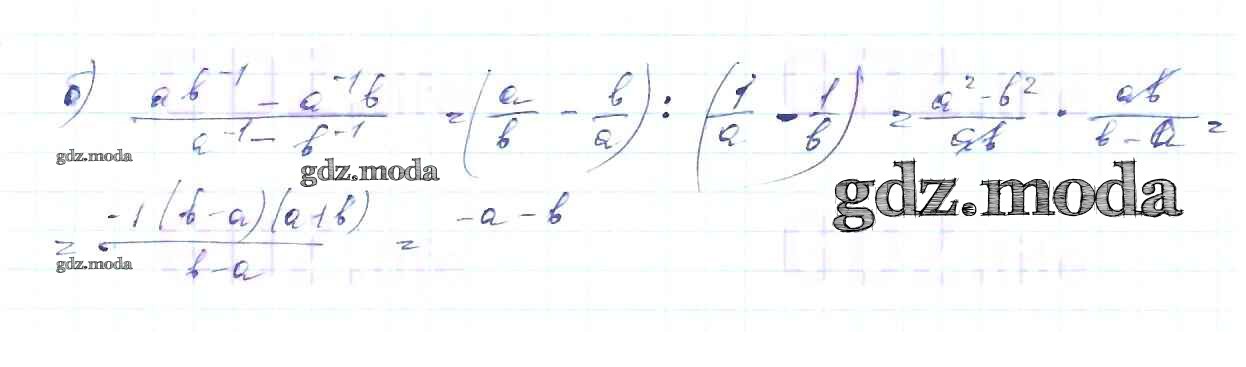 б) (ab⁻¹ - a⁻¹b)/(a⁻¹ - b⁻¹) = (a/b - b/a) : (1/a - 1/b) = (a² - b²)/(ab) · (ab)/(b - a) =
gdz.moda gdz.moda gdz.moda
= (-1(b-a)(a+b))/(b-a) = -a - b
gdz.moda